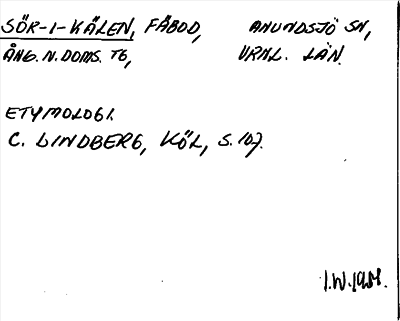 SÖR-I-KÄLEN, FÄBOD, ANUNDSJÖ SN,
ÅNG. N. DOMS. TG, VRNL. LÄN.
ETYMOLOGI.
C. LINDBERG, KÖL, S. 107.
I.W. 1981.